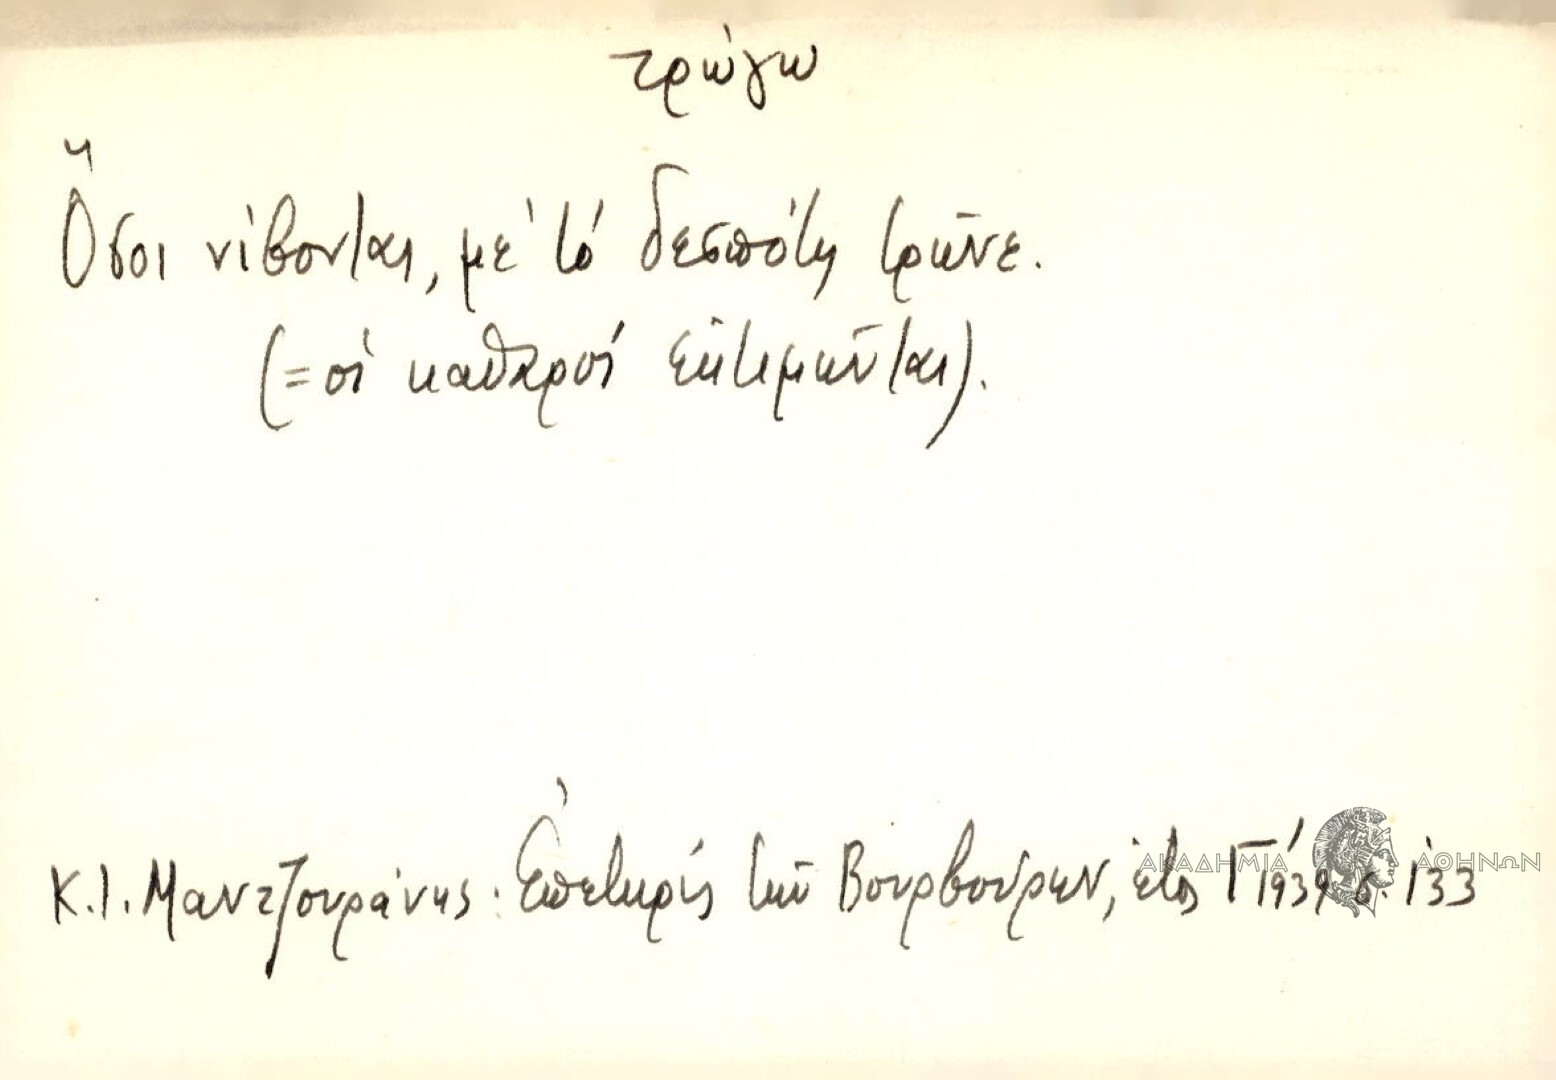 τρώγω
Ὅσοι νίβονται, μὲ τό δεσπότη τρῶνε.
(= οἱ καθαροί ἐκτιμῶνται).
Κ. Ι. Μαντζουράνης: Ἐπετηρίς τῶν Βουρβούρων, ἔτος Γ΄ 1939 σ. 133
ΑΚΑΔΗΜΙΑ ΑΘΗΝΩΝ